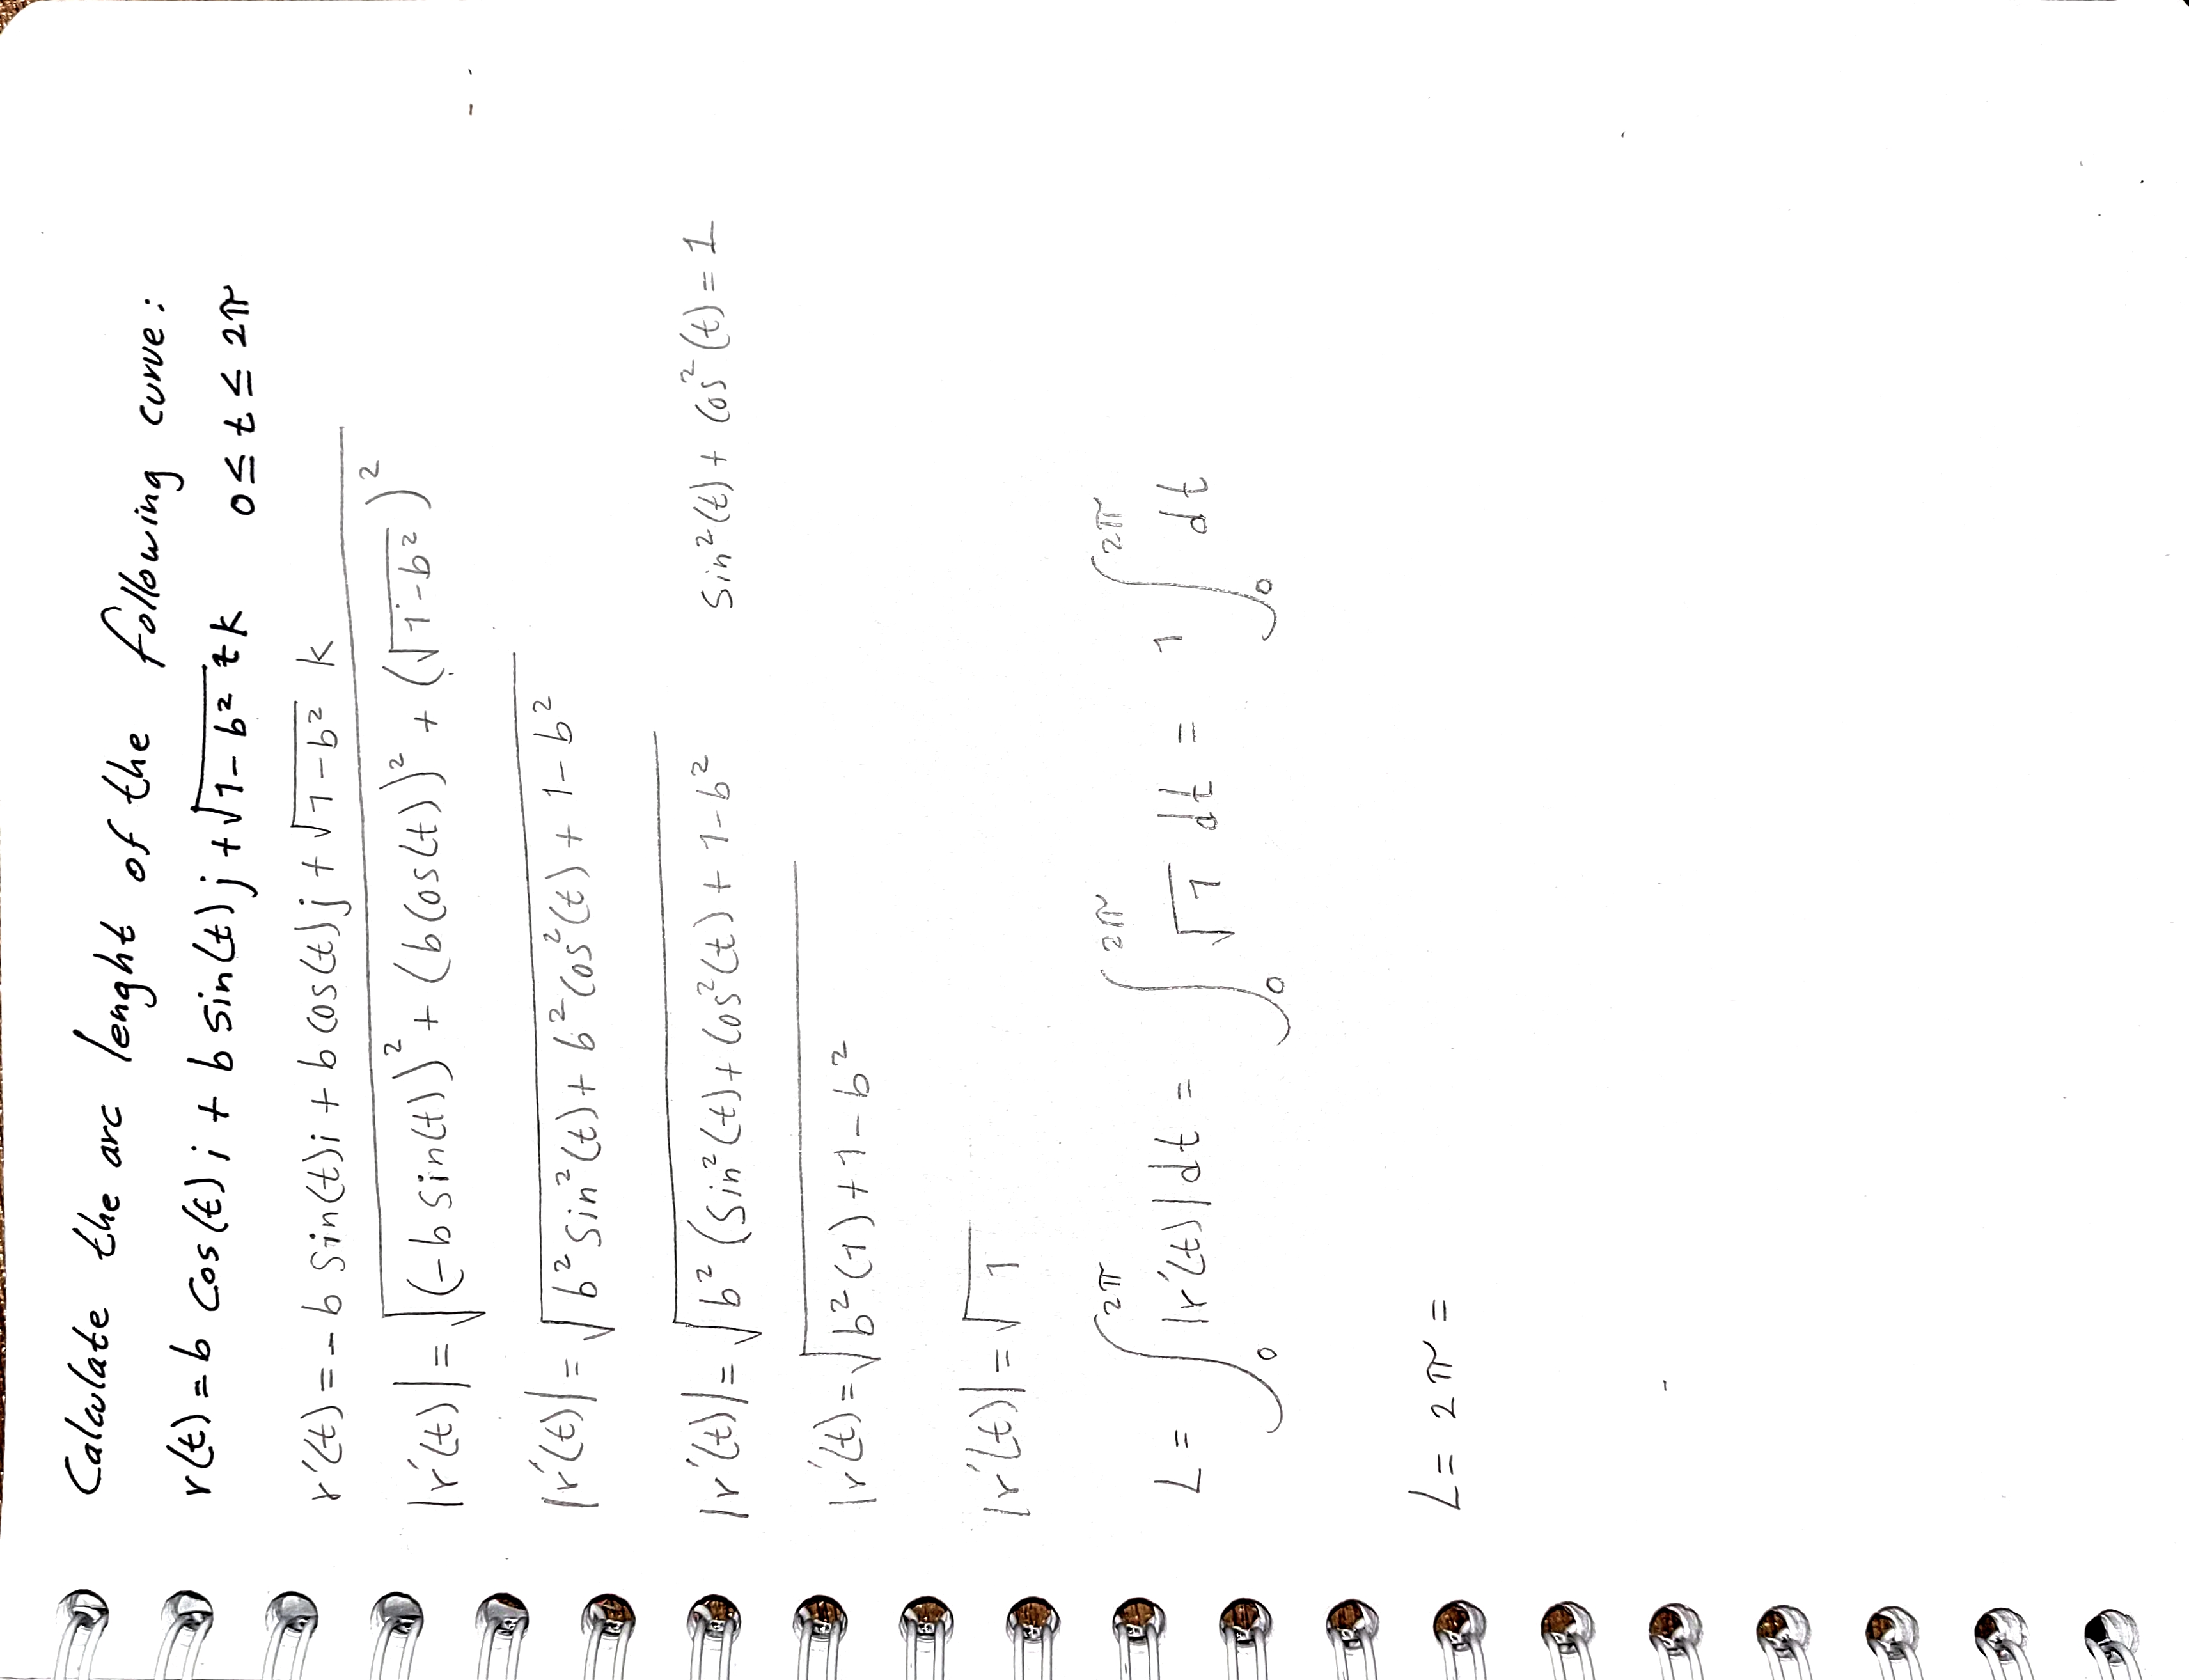 Calculate the arc lenght of the following curve:
r(t) = b cos(t) i + b sin(t) j + √(1-b²) t k   0 ≤ t ≤ 2π
r'(t) = -b sin(t) i + b cos(t) j + √(1-b²) k
|r'(t)| = √((-b sin(t))² + (b cos(t))² + (√(1-b²))²)
|r'(t)| = √(b² sin²(t) + b² cos²(t) + 1-b²)
|r'(t)| = √(b² (sin²(t) + cos²(t) + 1-b²)   sin²(t) + cos²(t) = 1
|r'(t) = √(b² (1) + 1-b²)
|r'(t)| = √1
L = ∫₀^2π |r'(t)| dt = ∫₀^2π √1 dt = 1 ∫₀^2π dt
L = 2π =